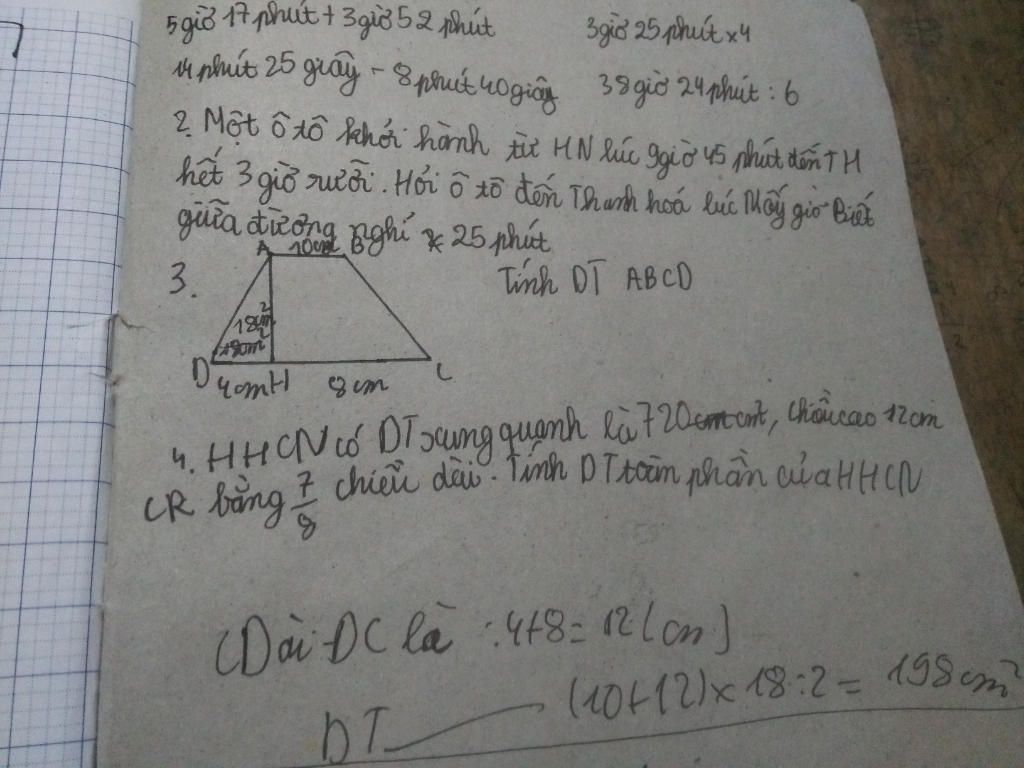 5giờ 17 phút + 3giờ 52 phút 3giờ 25 phút x4
14 phút 25 giây - 8 phút 40 giây 38giờ 24 phút : 6
2. Một ô tô khởi hành từ HN lúc 9giờ 45 phút đến TH
hết 3 giờ rưỡi. Hỏi ô tô đến Thanh hoá lúc Mấy giờ Biết
giữa đường nghỉ 25 phút
3. A 10cm B Tính DT ABCD
18cm²
18cm²
D 4cm H 8cm C
4. HHCN có DT xung quanh là 720 cm², chiều cao 12cm
CR bằng 7/8 chiều dài. Tính DT toàn phần của HHCN
CDài DC là : 4+8 = 12 (cm)
DT (10+12) x 18 : 2 = 198 cm²